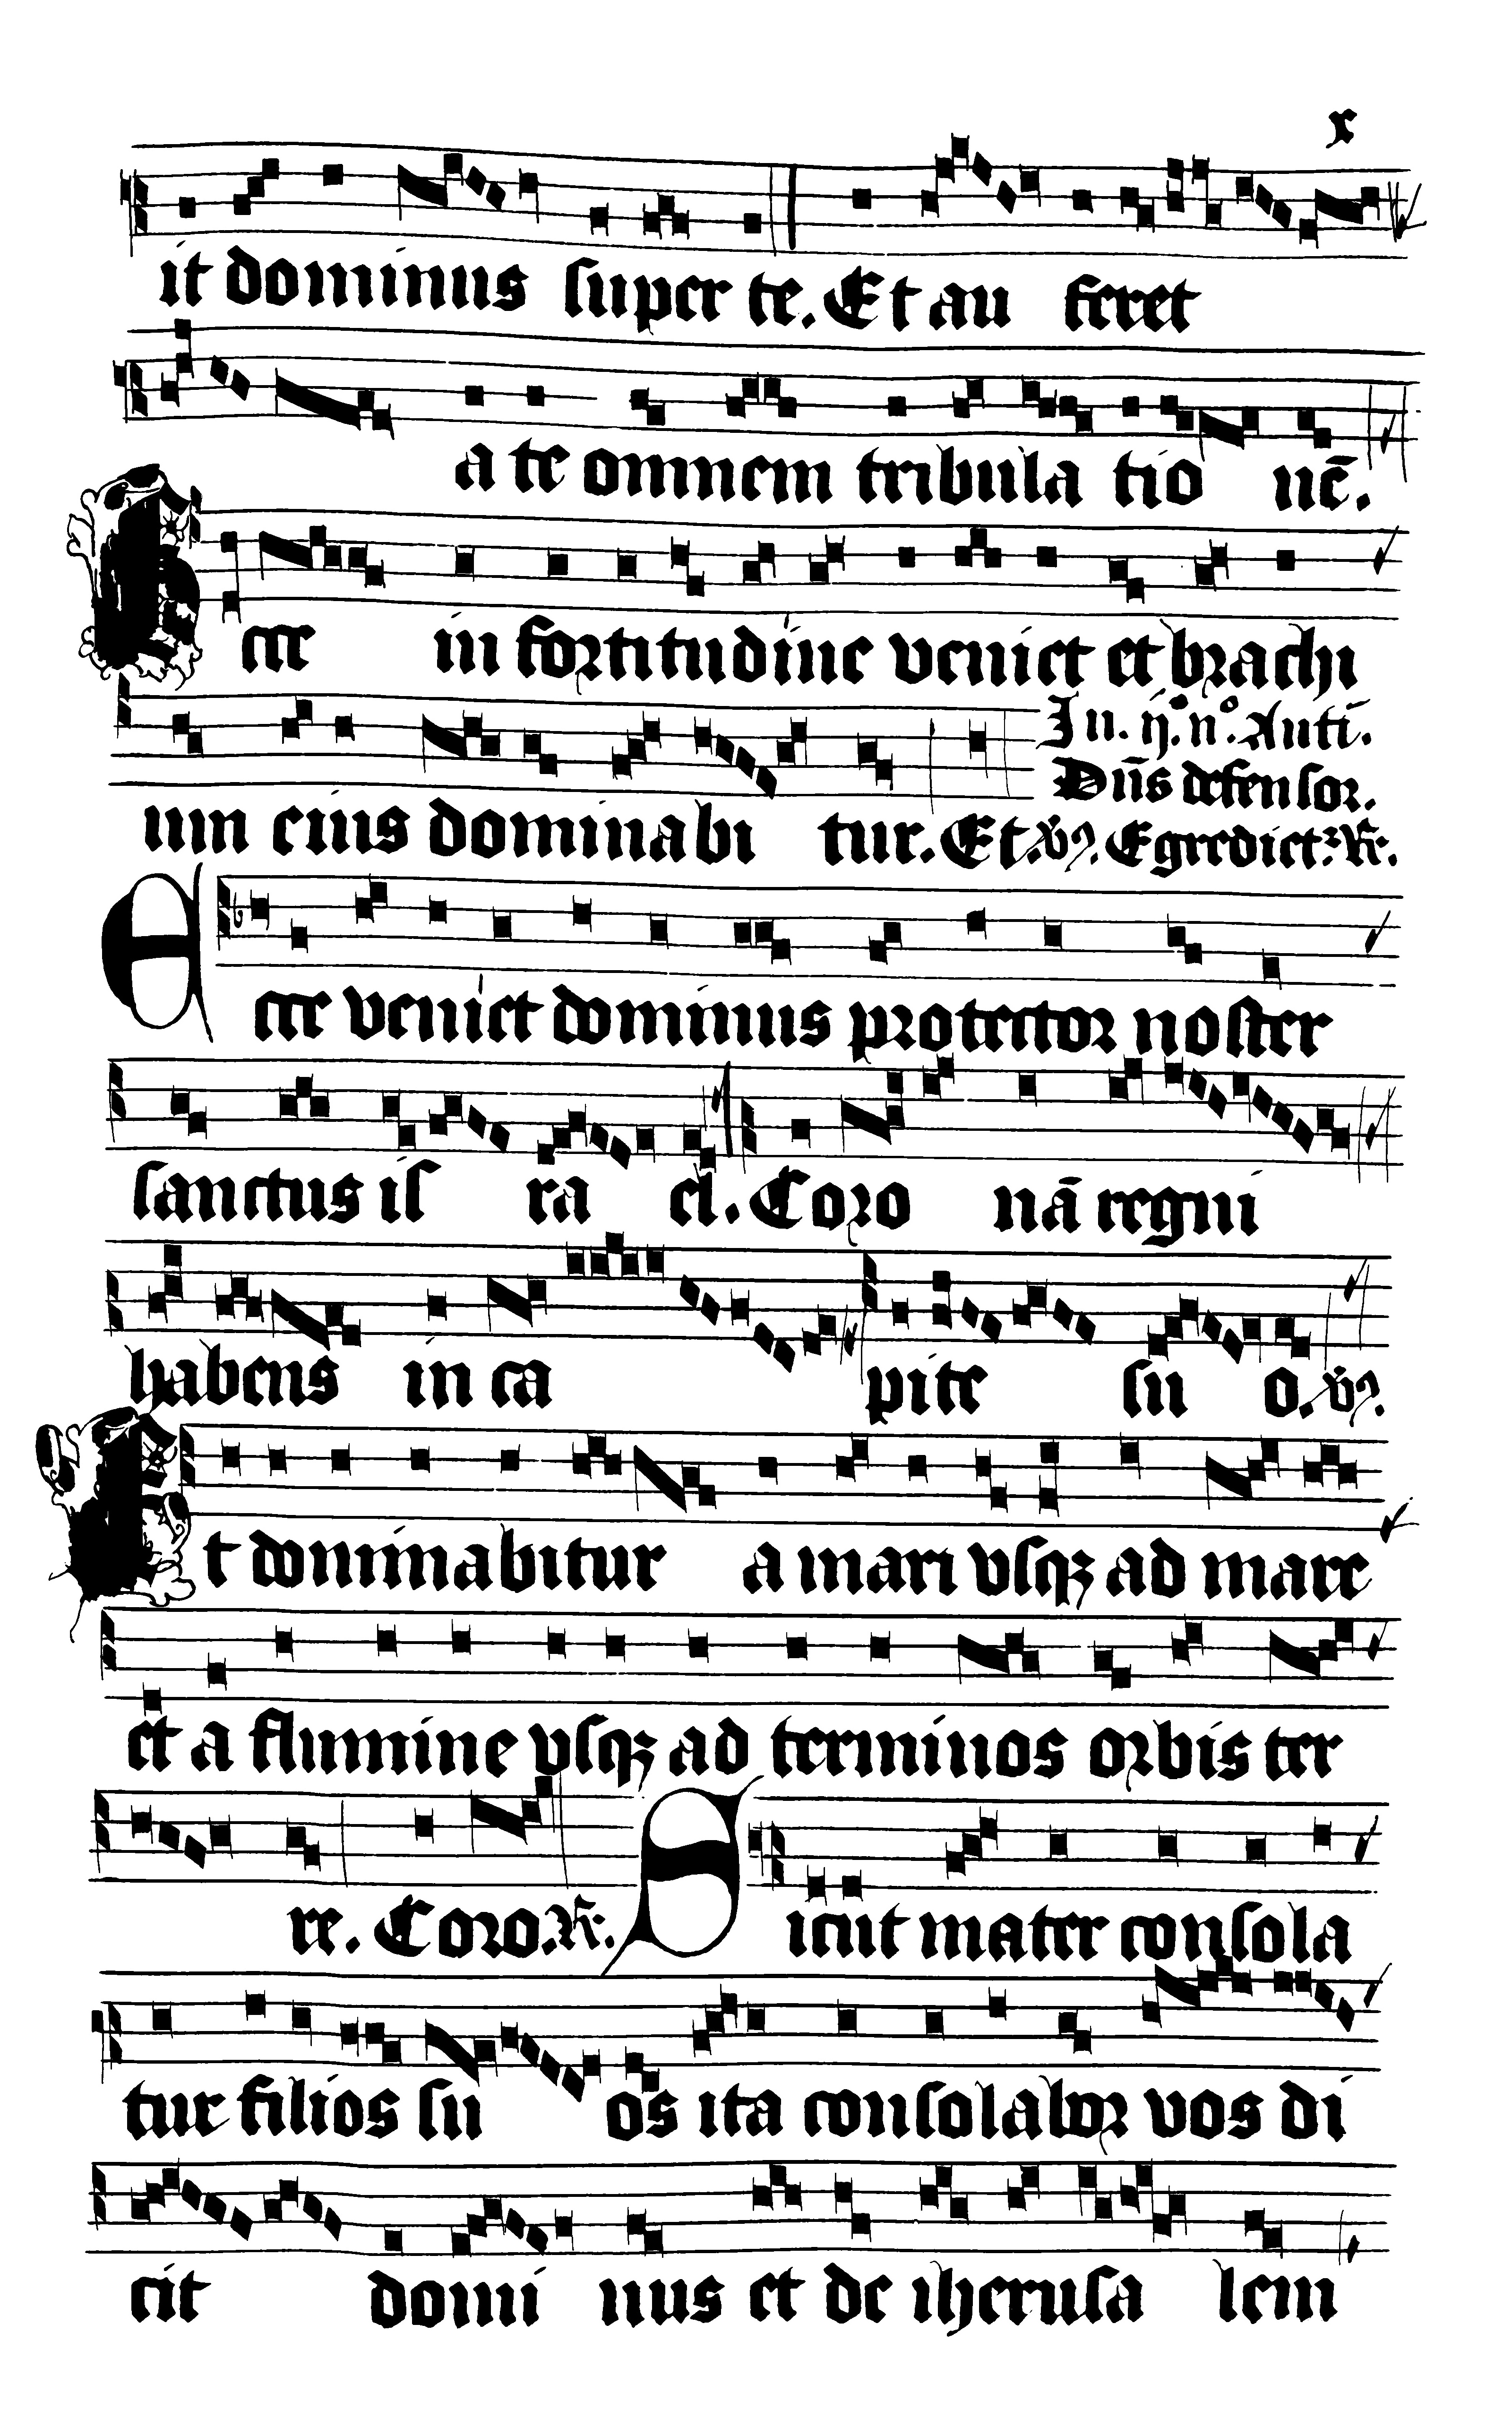 x
it dominus super te. Et au feret
a te omnem tribula tio nē.
Ecce in fortitudine veniet et brachi
um eius dominabi tur. Et. v̄s.
In. ij.º n.º Anti.
Dn̄s defensor.
Egrediet.ꝛ R̄.
Ecce veniet dominus protector noster
sanctus is ra el. Coro nā regni
habens in ca pite su o. v̄s.
Et dominabitur a mari vsqꝫ ad mare
et a flumine vsqꝫ ad terminos orbis ter
re. Coro. R̄. Sicut mater consola
tur filios su os ita consolabor vos di
cit domi nus et de iherusa lem